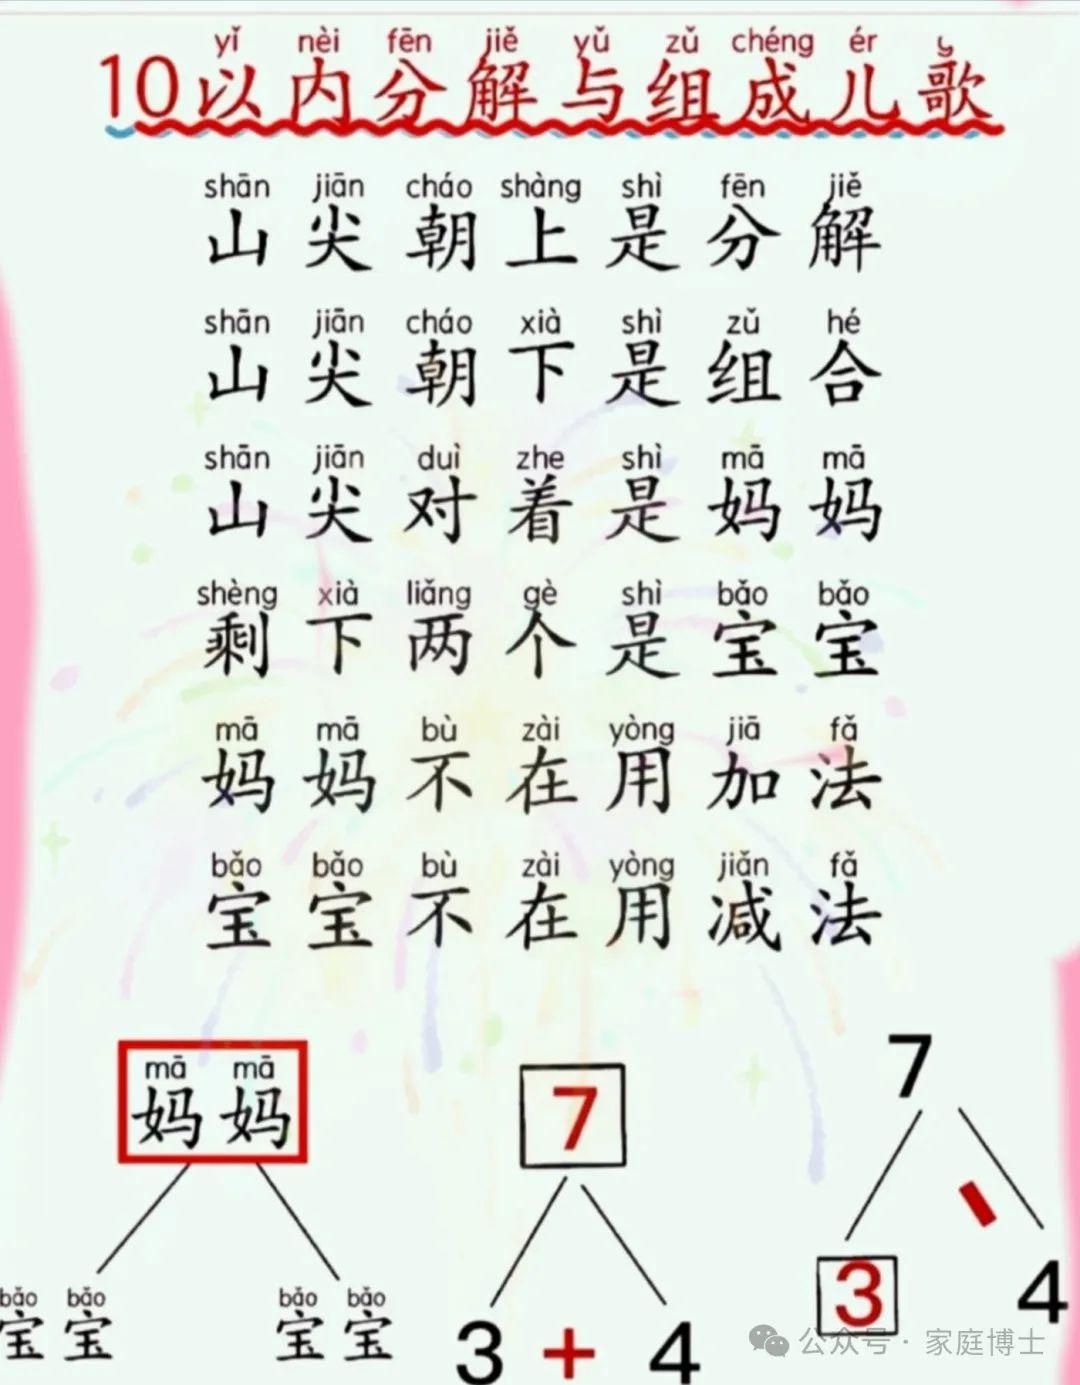 yǐ nèi fēn jiě yǔ zǔ chéng ér
10以内分解与组成儿歌
shān jiān cháo shàng shì fēn jiě
山尖朝上是分解
shān jiān cháo xià shì zǔ hé
山尖朝下是组合
shān jiān duì zhe shì mā mā
山尖对着是妈妈
shèng xià liǎng gè shì bǎo bǎo
剩下两个是宝宝
mā mā bù zài yòng jiā fǎ
妈妈不在用加法
bǎo bǎo bù zài yòng jiǎn fǎ
宝宝不在用减法
mā mā
妈妈
bǎo bǎo bǎo bǎo
宝宝 宝宝
7
3 + 4
7
3 - 4
公众号·家庭博士